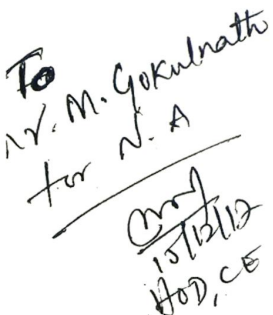 To
Mr. M. Gokulnath
for N. A
10/12/12
HOD, CE